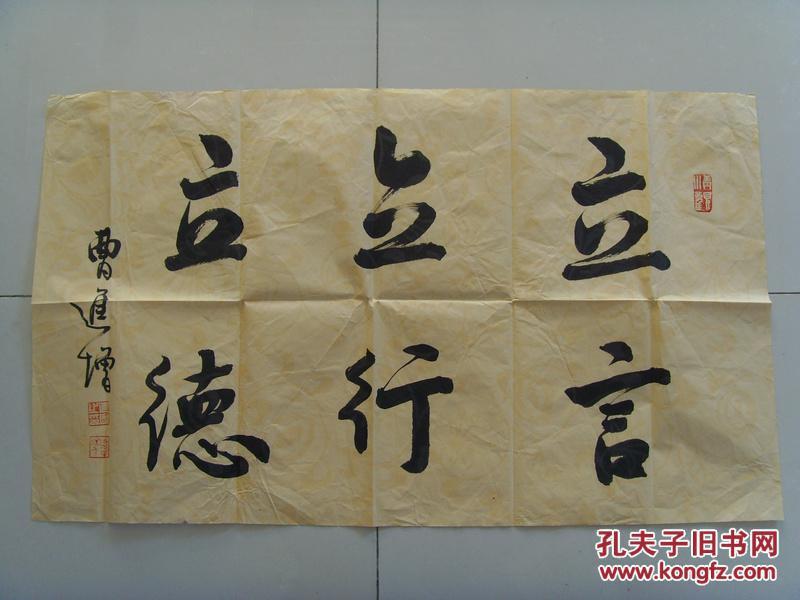 立言
立行
立德
曹進增
孔夫子旧书网
www.kongfz.com